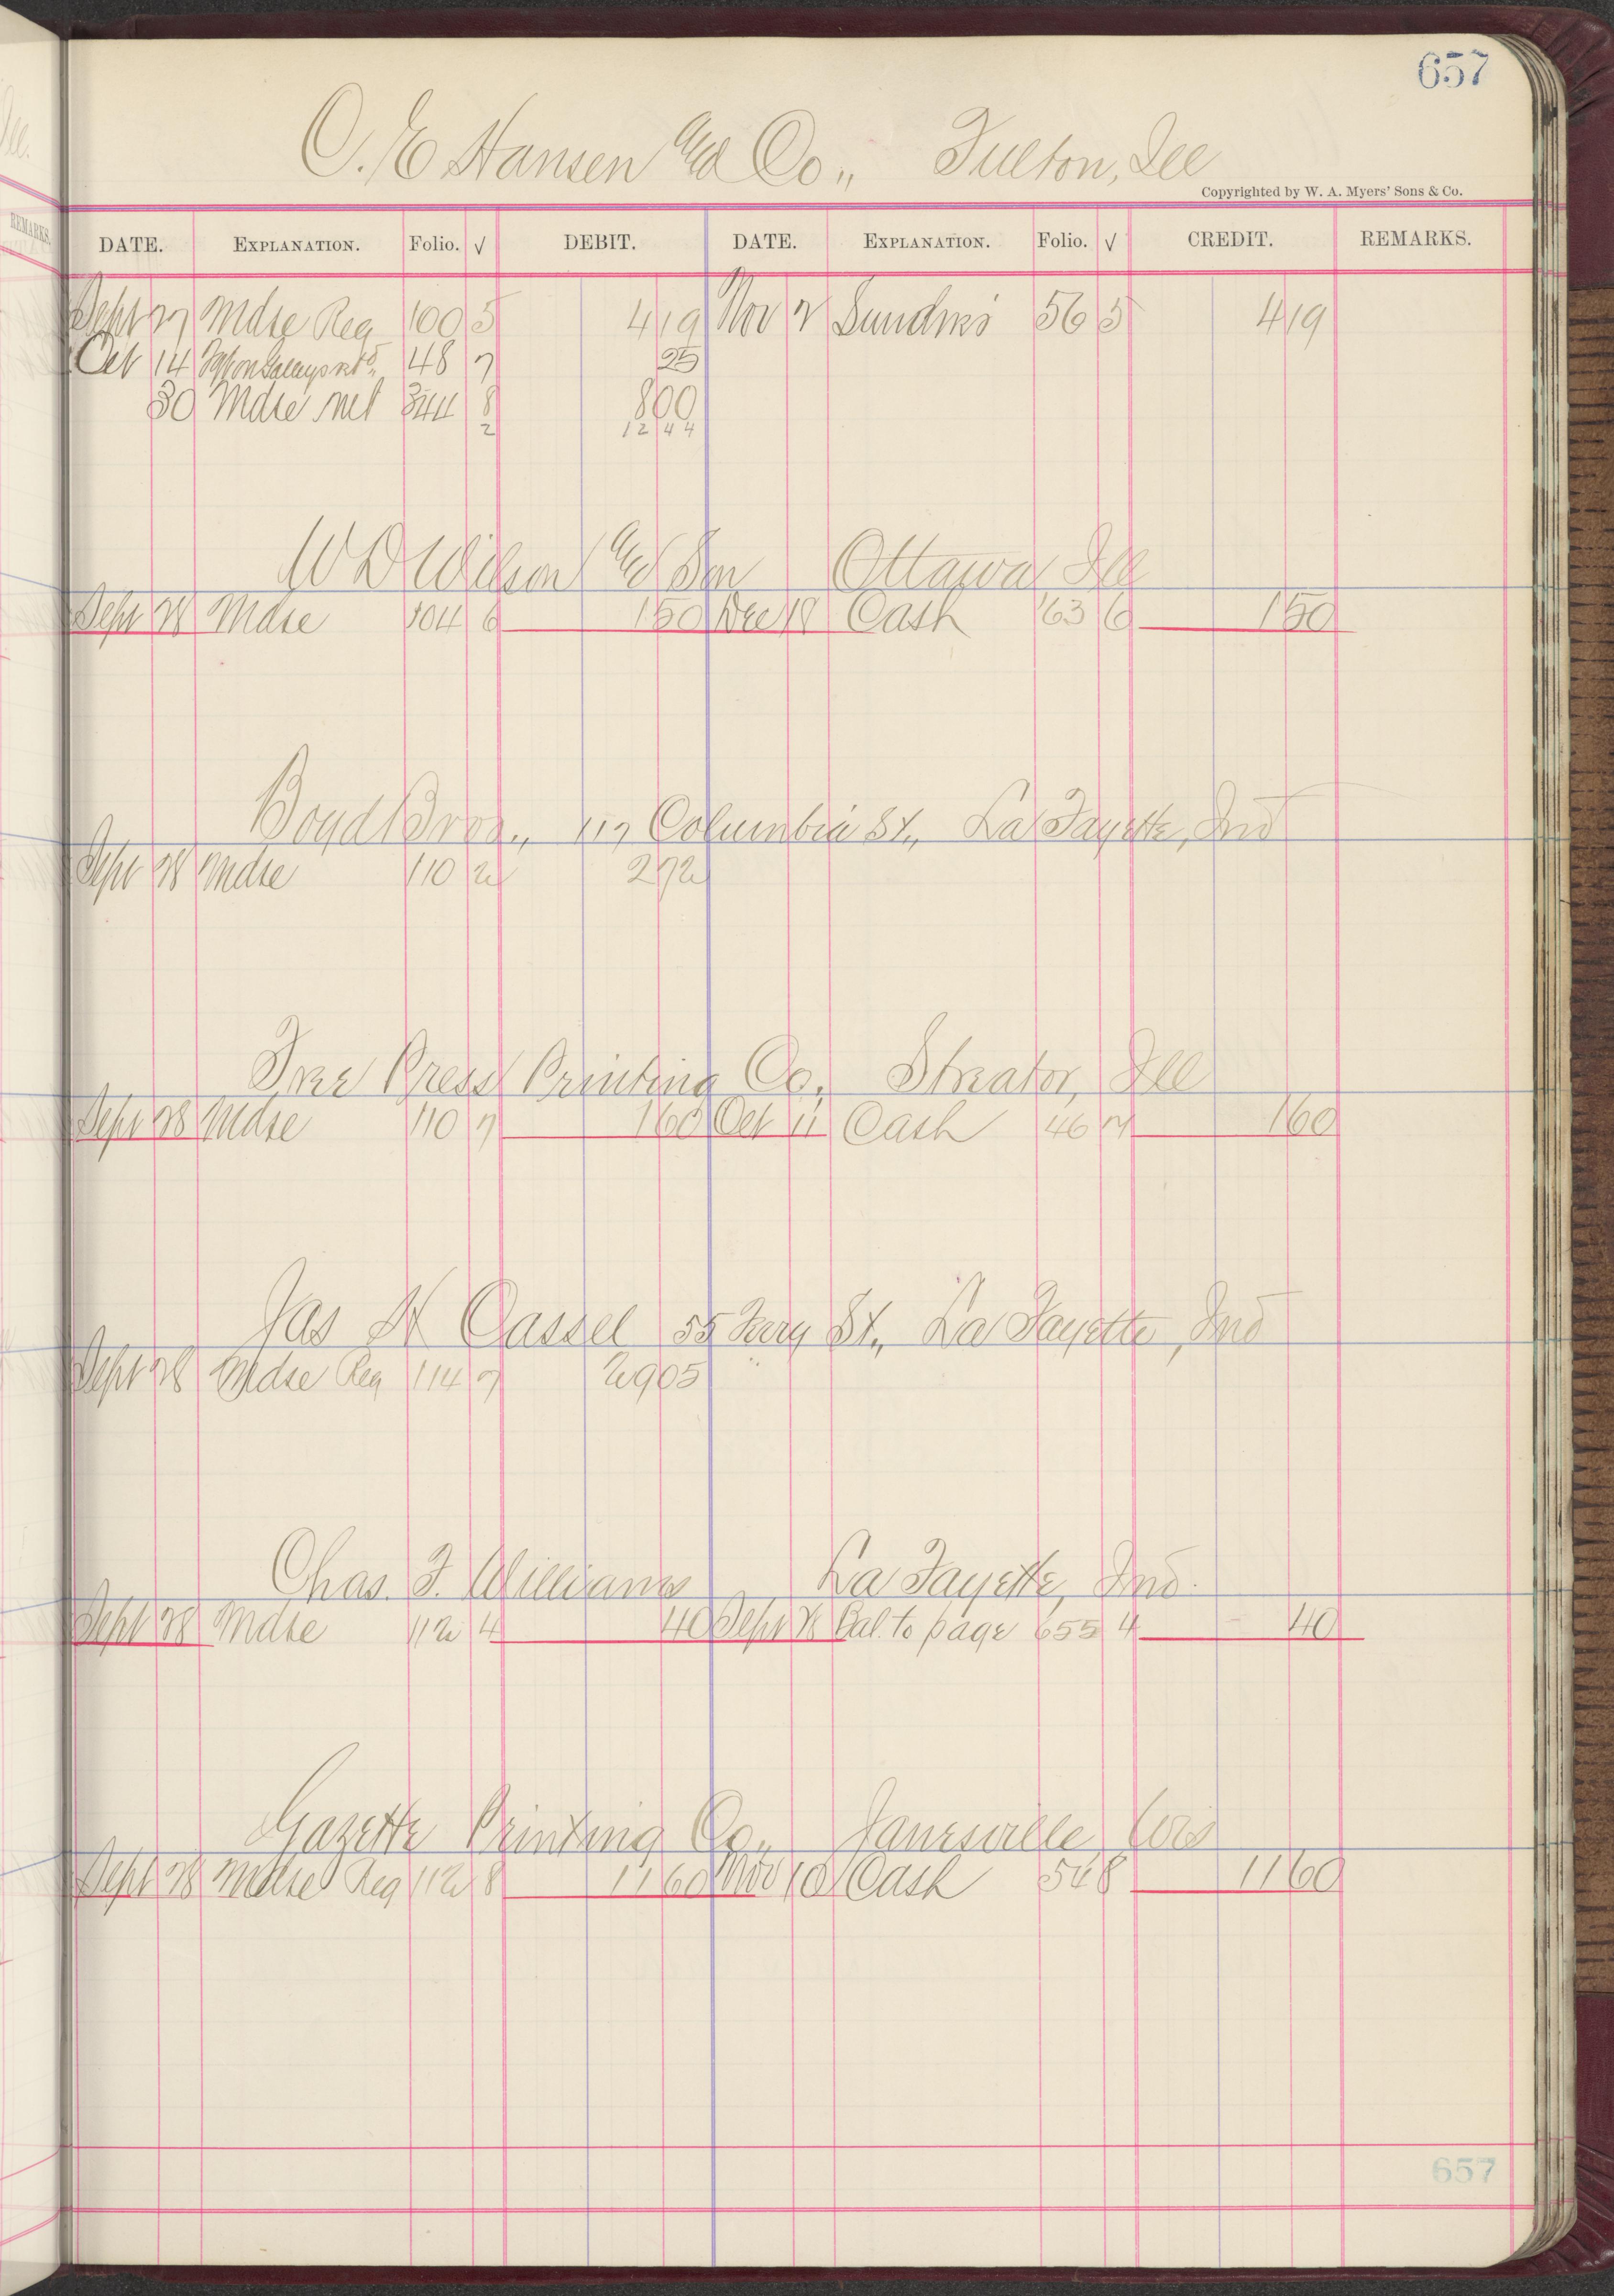 657
C. E Hansen and Co., Fulton, Ill
Copyrighted by W. A. Myers' Sons & Co.
DATE. EXPLANATION. Folio. √ DEBIT. DATE. EXPLANATION. Folio. √ CREDIT. REMARKS.
Sept 27 Mdse Reg 100 5 4 19 Nov 2 Sundries 56 5 4 19
Oct 14 48 7 25
30 Mdse net 344 8 8 00
2 12 44
W D Wilson and Son Ottawa Ill
Sept 28 Mdse 104 6 1 50 Dec 18 Cash 63 6 1 50
Boyd Bros., 117 Columbia St., La Fayette, Ind
Sept 28 Mdse 110 2 2 72
Free Press Printing Co., Streator, Ill
Sept 28 Mdse 110 7 1 60 Oct 11 Cash 46 7 1 60
Jas H Cassel 55 Ferry St., La Fayette, Ind
Sept 28 Mdse Reg 114 7 29 05
Chas. F. Williams La Fayette, Ind.
Sept 28 Mdse 112 4 40 Sept 28 Bal. to page 655 4 40
Gazette Printing Co., Janesville Wis
Sept 28 Mdse Reg 112 8 11 60 Nov 10 Cash 54 8 11 60
657